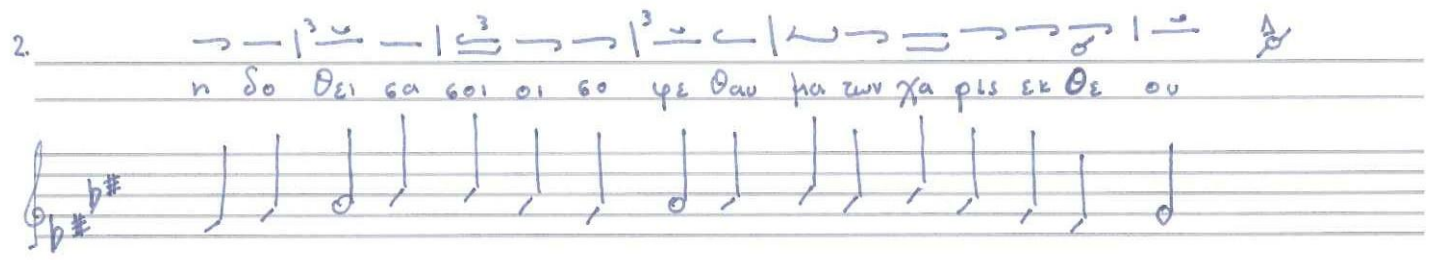 2.
3 3 3
η δο θει σα σοι οι σο φε θαυ μα των χα ρις εκ θε ου